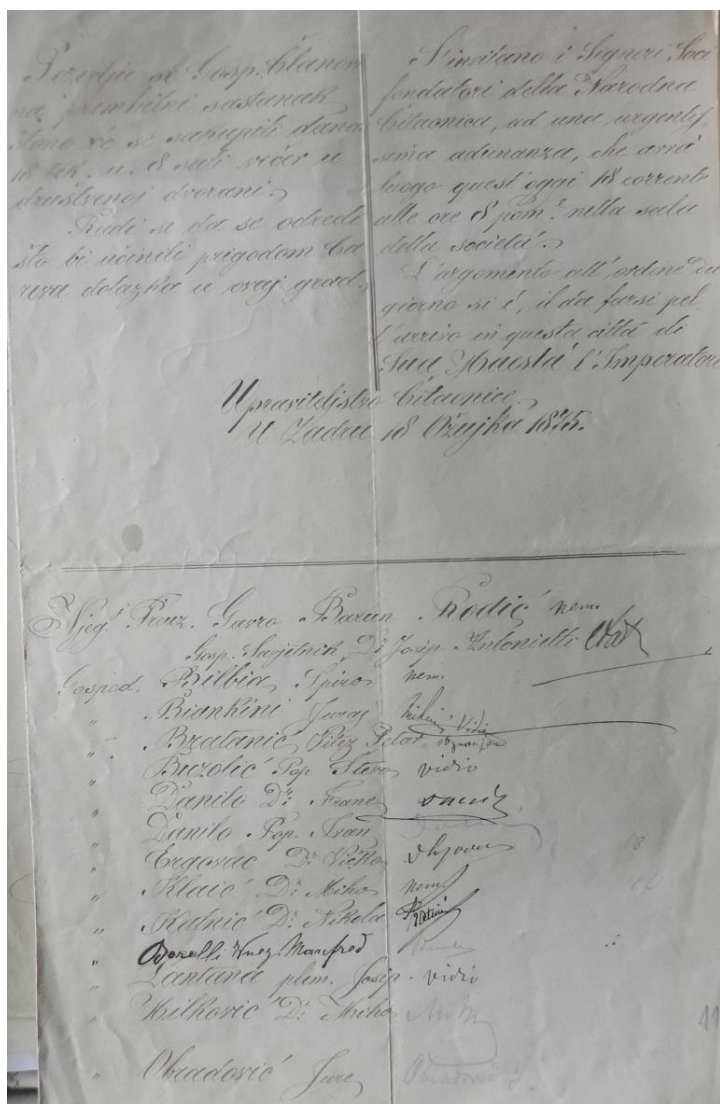 Pozivlju se Gosp. Članovi
na prešni sastanak
što no će se sakupiti dana
18 tek. u 8 sati večer u
družtvenoj dvorani.
Radi se da se odredi
što bi učiniti prigodom Ca
reva dolazka u ovaj grad.
S'invitano i Signori Soci
fondatori della Narodna
Čitaonica, ad una urgentis-
sima adunanza, che avrà
luogo quest'oggi 18 corrente
alle ore 8 pom.e nella sala
della società.
L'argomento all'ordine del
giorno si è, il da farsi pel
l'arrivo in questa città di
Sua Maestà l'Imperatore
Upraviteljstvo Čitaonice.
U Zadru 18 Ožujka 1875.
Njeg. Preuz. Gavro Barun Rodić nem.
Gosp. Savjetnik Dr Josip Antonietti
Gosped. Bilbia Špiro nem.
" Biankini Juraj
" Bratanić Vitez Petar
" Buzolić Pop Stevo vidio
" Danilo Dr. Frane
" Danilo Pop. Ivan
" Ergovac Dr Vicko
" Klaić Dr Miho nem.
" Katnić Dr. Nikola
" Borelli Knez Manfred
" Lantana plem. Josip vidio
" Milković Dr Miho
" Obradović Jure Obradović J.